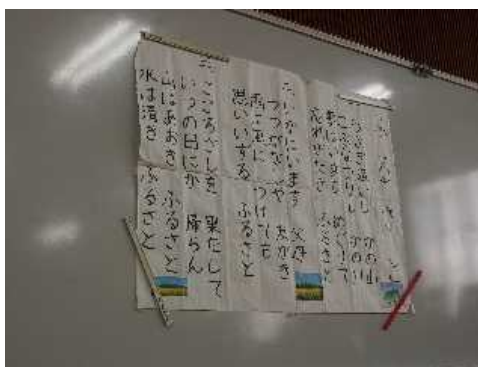 ふるさと
うさぎ追いし かの山
こぶなつりし かの川
夢はいまも めぐりて
忘れがたき ふるさと
二、いかにいます 父母
つつがなしや がき
雨に風に つけても
思いいずる ふるさと
三、こころざしを 果たして
いつの日にか 帰らん
山はあおき ふるさと
水は清き ふるさと